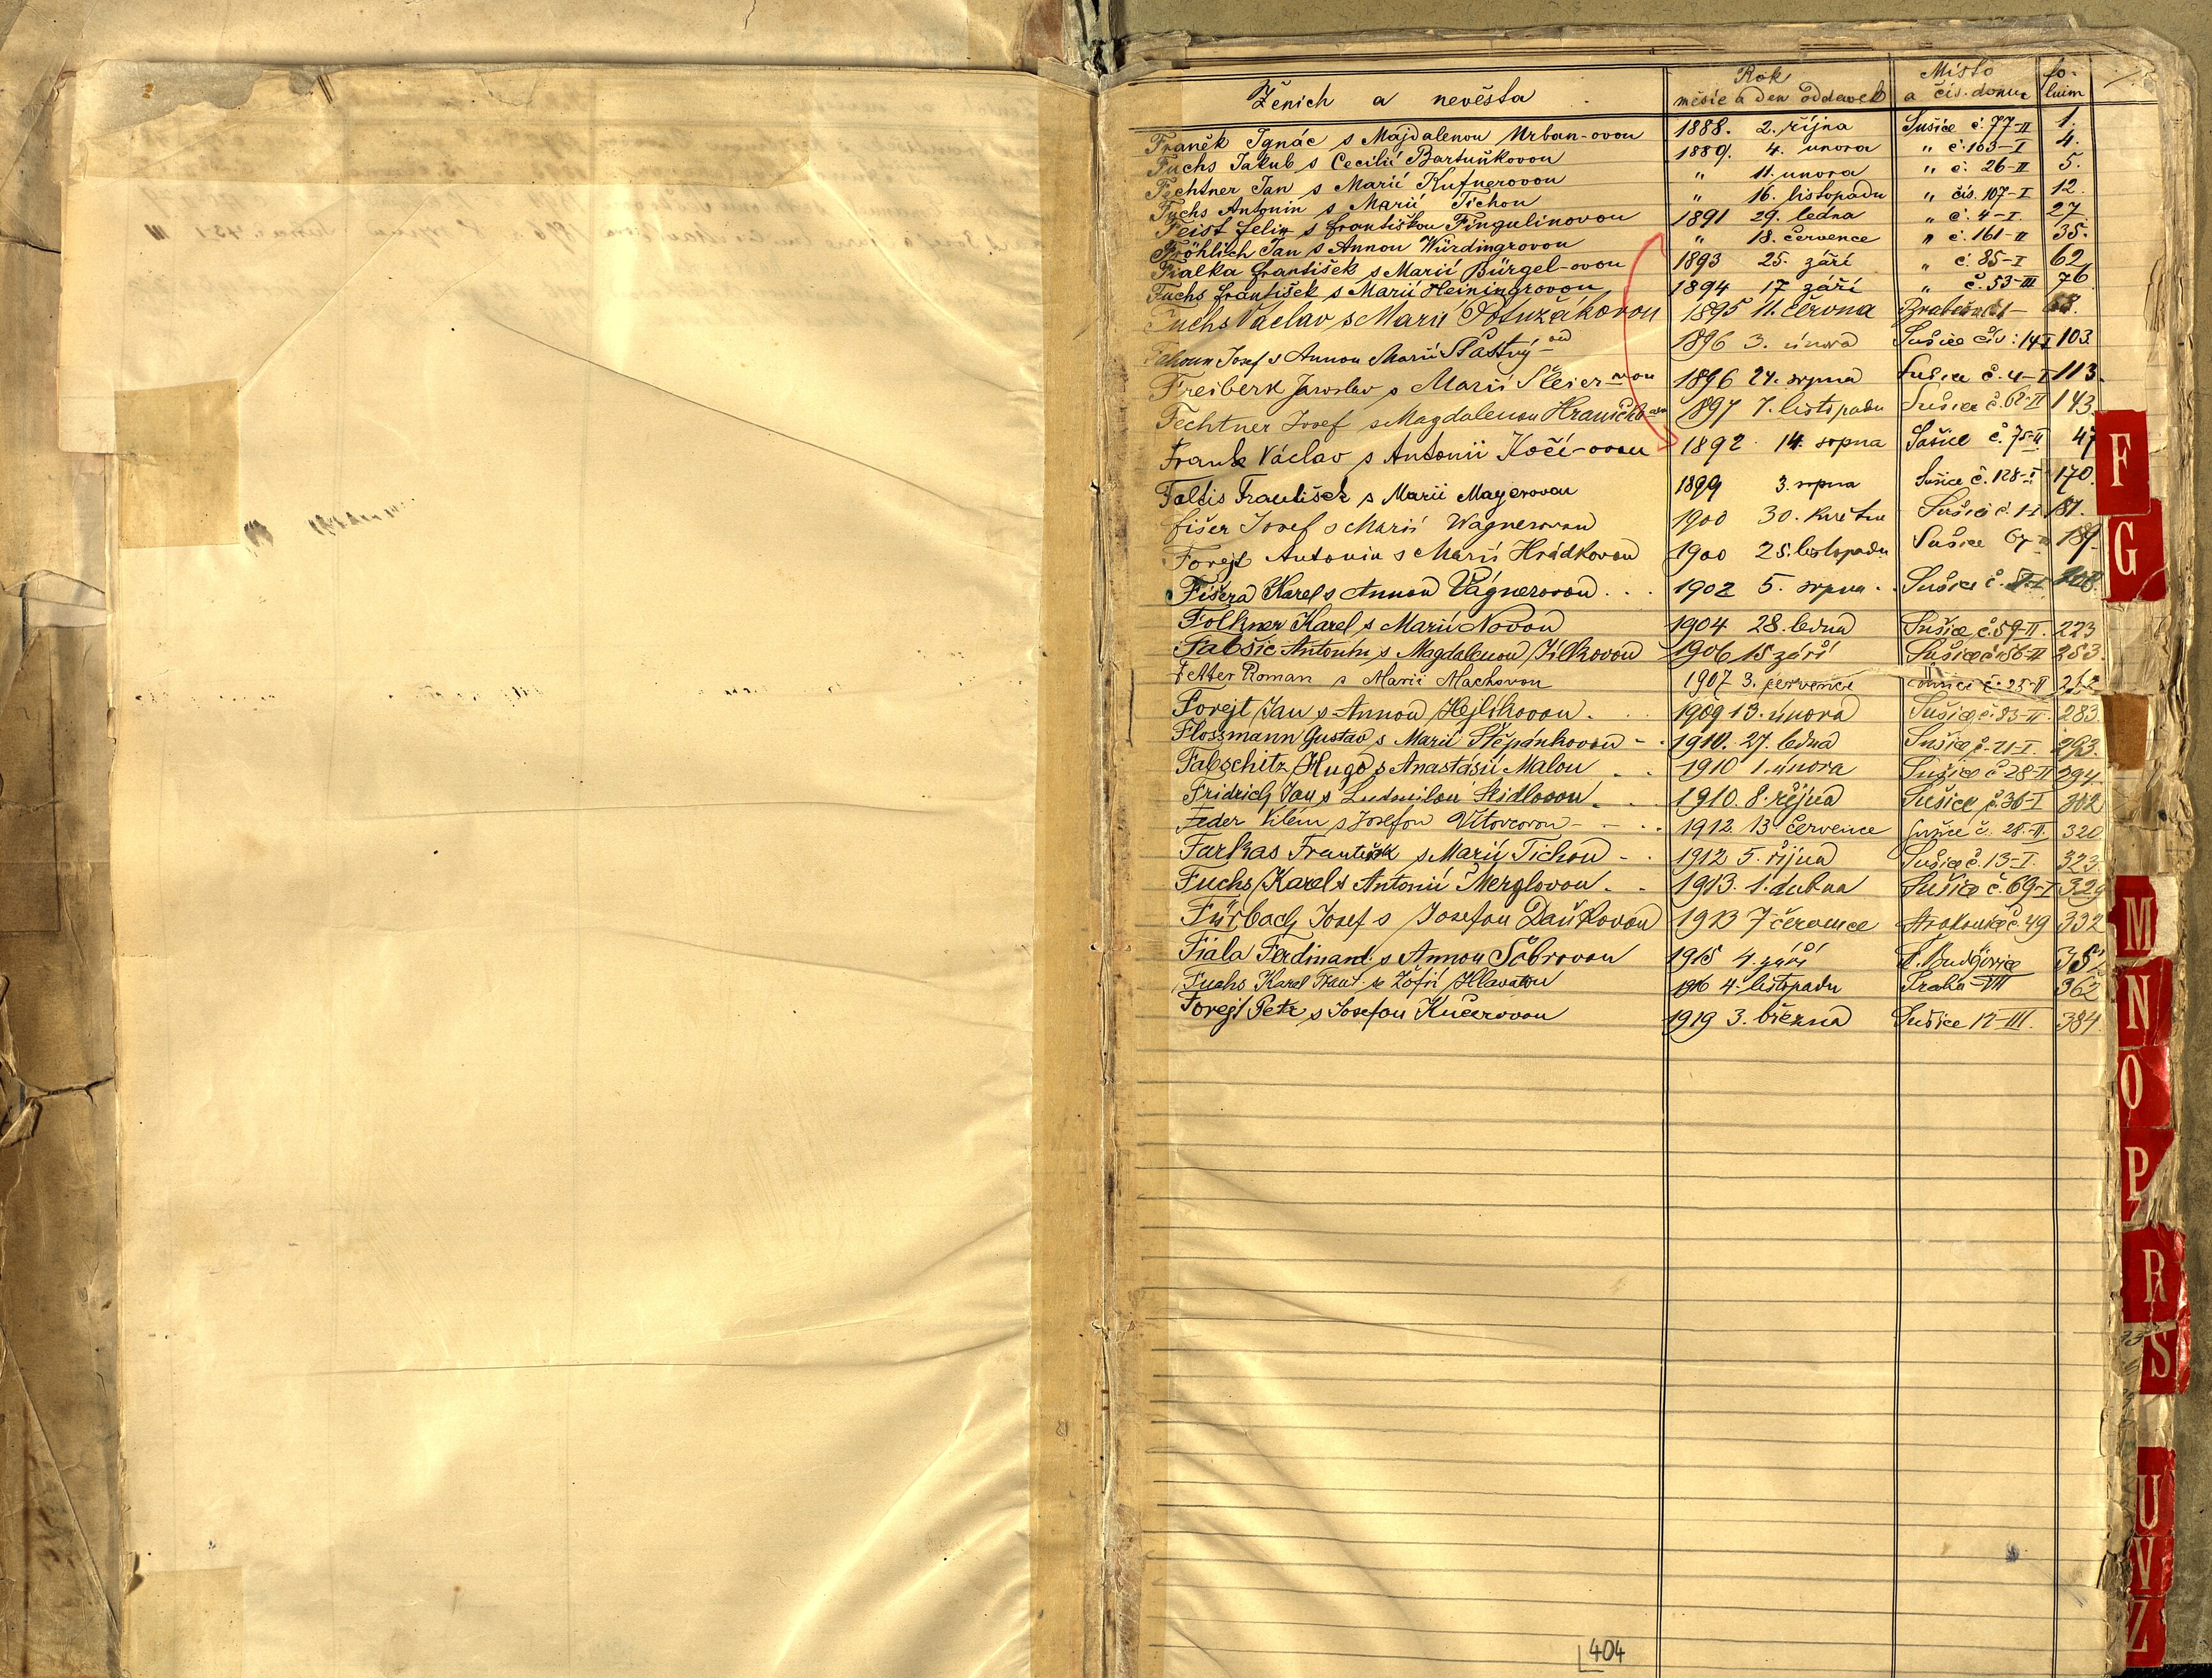 Ženich a nevěsta Rok měsíc a den oddavek Místo a čís. domu fo-lium
Franěk Ignác s Majdalenou Urban-ovou 1888. 2. října Sušice č. 77-II 1.
Fuchs Jakub s Cecilií Bartuňkovou 1889. 4. unora " č. 163-I 4.
Fechtner Jan s Marií Kufnerovou " 11. unora " č. 26-II 5.
Fuchs Antonin s Marií Tichou " 16. listopadu " čís. 107-I 12.
Feist Felix s Františkou Fingulinovou 1891 29. ledna " č. 4-I. 27
Fröhlich Jan s Annou Würdingrovou " 18. července " č. 161-II 35.
Fialka František s Marií Bürgel-ovou 1893 25. září " č. 85-I 62
Fuchs František s Marií Heiningrovou 1894 17 září " č. 53-III 76
Fuchs Václav s Marií Potužákovou 1895 11. června
Josef s Annou Marií Šťastný-ou 1896 3. února Sušice čís: 14-I 103.
Freiberk Jaroslav s Marií Šleier-ovou 1896 24. srpna Sušice č. 4-I 113.
Fechtner Josef s Magdalenou 1897 7. listopadu Sušice č. 62-II 143.
Frank Václav s Antonií Kočí-ovou 1892 14. srpna Sušice č. 75-II 47
Faltis František s Marií Mayerovou 1899 3. srpna Sušice č. 128-I 170.
Fišer Josef s Marií Wagnerovou 1900 30. května Sušice č. 1-I 181.
Forejt Antonín s Marií Hrádkovou 1900 25. listopadu Sušice 67 189.
Fišera Karel s Annou Vágnerovou . . . 1902 5. srpna . Sušice č. 208.
Folkner Karel s Marií Novou 1904 28. ledna Sušice č. 59-II. 223
Fabšic Antonín s Magdalenou Jílkovou 1906 15 září Sušice č. 56-II 253.
Fetter Roman s Marií Machovou 1907 3. července Sušice č. 25-II
Forejt Jan s Annou Hejlíkovou. 1909 13. února Sušice č. 83-II. 283.
Flossmann Gustav s Marií Štěpánkovou - . 1910. 27. ledna Sušice č. 21-I. 293.
Fabschitz Hugo s Anastásií Malou . . 1910 1. února Sušice č. 28-II 294.
Fridrich Jan s Ludmilou Seidlovou . . 1910. 8. října Sušice č. 36-I 302
Feder Vilém s Josefou Vítovcovou - - . 1912. 13 července Sušice č. 28-II. 320
Farkas František s Marií Tichou - . 1912 5. října Sušice č. 13-I. 323
Fuchs Karel s Antonií Merglovou. . 1913. 1. dubna Sušice č. 69-I 329
Fürbach Josef s Josefou Daňkovou 1913 7 července č. 49 332
Fiala Ferdinand s Annou Šobrovou 1915 4. září Č. Budějovice
Fuchs Karel Frant. se Žofií Hlavatou 1916 4. listopadu Praha VIII 362
Forejt Petr s Josefou Kučerovou 1919 3. března Sušice 12-III. 384
404
F
G
M
N
O
P
R
S
U
V
Z